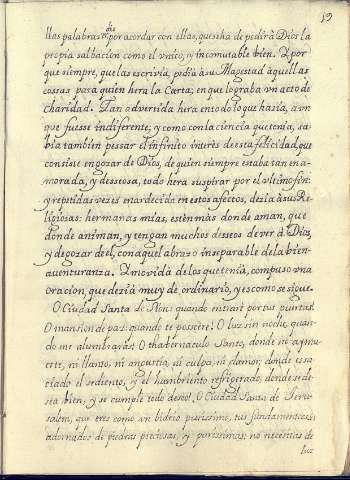 19
dis
llas palabras por acordar con ellas, que se ha de pedir à Dios la
propia salbacion como el vnico, y incomutable bien. Y por
que siempre, que las escrivia, pedia a su Magestad aquellas
cosas para quien hera la Carta; en que lograba vn acto de
charidad. Tan advertida hera en todo lo que hazia, aun
que fuesse indiferente, y como con la ciencia que tenia, sa
bia tambien pessar el infinito interès de esta felicidad, que
consiste en gozar de Dios, de quien siempre estaba tan en a-
morada, y desseosa, todo hera suspirar por el vltimo fin:
y repitidas vezes enardecida en estos afectos, dezia à sus Re
ligiosas: hermanas mias, estèn màs donde aman, que
donde animan, y tengan muchos desseos de ver à Dios,
y de gozar de el, con aquel abrazo inseparable de la bien-
auenturanza. Y movida de los que tenia, compuso vna
oracion, que dezia muy de ordinario, y es como se sigue.
O Ciudad Santa de Sion: quando entrarè por tus puertas!
O mansion de paz: quando te posseirè! O luz sin noche, quan-
do me alumbraràs! O thabernaculo Santo, donde no ay mu-
erte, ni llanto, ni angustia, ni culpa, ni clamor; donde es sa
ciado el sediento, y el hambriento refrigerado, donde se de
sea bien, y se cumple todo deseo! O Ciudad Santa de Jeru-
salem, que eres como un bidrio purissimo, tus fundamentos
adornados de piedras preciosas, y purissimas: no necesitas de
luz